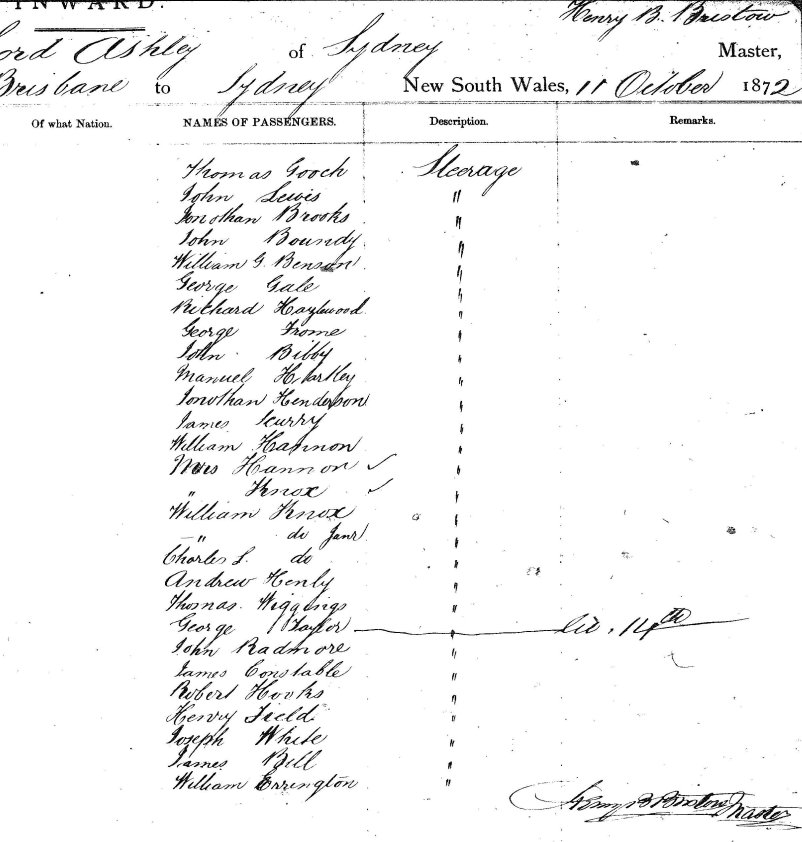 INWARD.
Henry B. Bristow
ord Ashley of Sydney Master,
Brisbane to Sydney New South Wales, 11 October 1872
Of what Nation. NAMES OF PASSENGERS. Description. Remarks.
Thomas Gooch Steerage
John Lewis "
Jonothan Brooks "
John Boundy "
William G. Benson "
George Gale "
Richard Hazlewood "
George Frome "
John Bibby "
Manuel Hartley "
Jonothan Henderson "
James Scurry "
William Hannon "
Mrs Hannon ✓ "
" Knox ✓ "
William Knox "
" do Junr "
Charles L. do "
Andrew Henly "
Thomas Wiggings "
George Taylor " 14th
John Radmore "
James Constable "
Robert Hooks "
Henry Field "
Joseph White "
James Bell "
William Errington "
Henry B Bristow Master